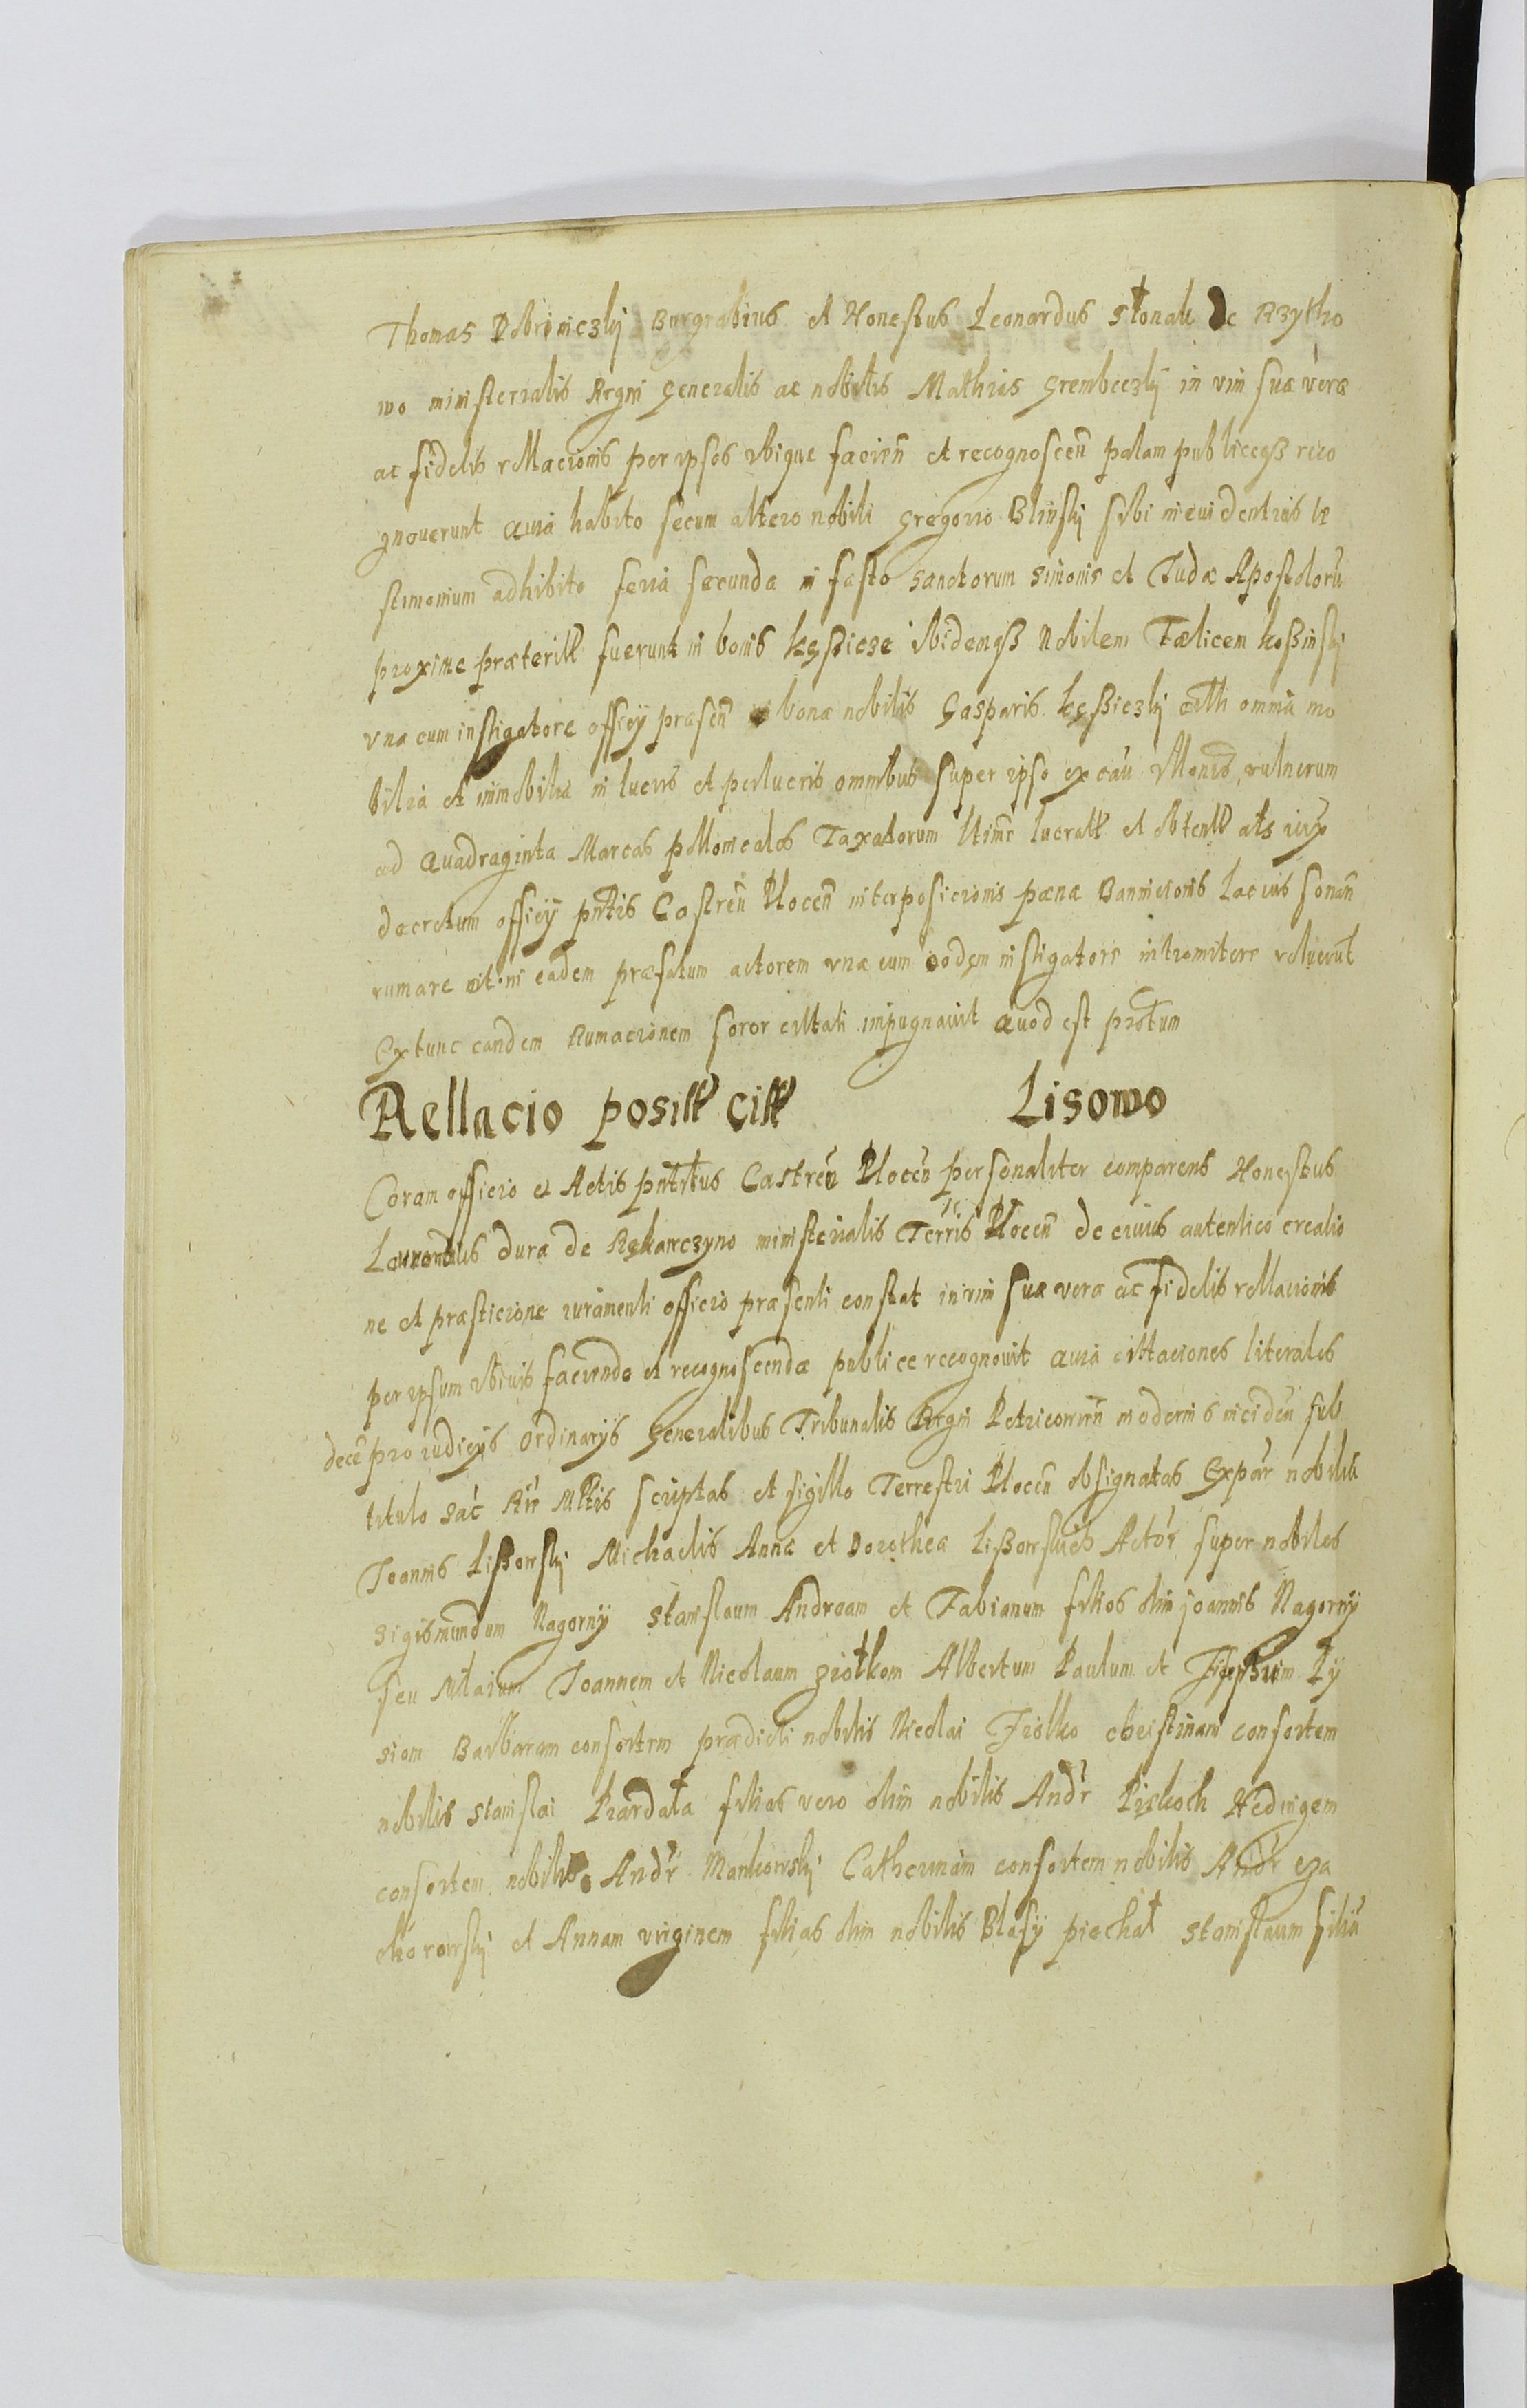 Thomas Dobrniczkÿ Burgrabius et Honestus Leonardus słonak de Rzytho
wo ministerialis Regni Generalis ac nobilis Mathias Grembeczkÿ in vim suæ veræ
ac fidelis rellacionis per ipsos vbique facien̄ et recognoscen̄ palam publiceqß reco
gnoverunt Quia habito secum altero nobili Gregorio Blinskÿ sibi in euidentius te
stimonium adhibito feria secunda in festo sanctorum Simonis et Judæ Apostolorū
proxime præteritt fuerunt in bonis kęssicze ibidemqß Nobilem Fælicem koßinskÿ
vna cum instigatore officÿ præsen̄ bona nobilis Gasparis kęßiczkÿ omnia mo
bilia et inmobilia in lucris et perlucris omnibus super ipso ex cau rellonis vulnerum
ad Quadraginta Marcas pollonicales Taxatorum ltime lucratt et obtentt als iux
decretum officÿ pntis Castren̄ Plocen̄ interposicionis pænæ Bannicionis lacius sonan̄
rumare in eadem præfatum actorem vna cum eodem instigatore intromitere voluerūt
Extunc eandem Rumacionem soror impugnauit Quod est protum
Rellacio positt citt Lisowo
Coram officio et Actis pntibus Castren̄ Plocen̄ personaliter comparens Honestus
Laurentius dura de Rękawczyno ministerialis Terris Plocen̄ de cuius autentico creatio
ne et præsticione iuramenti officio præsenti constat in vim suæ veræ ac fidelis rellacionis
per ipsum vbiuis faciendæ et recognoscendæ publice recognouit Quia cittaciones literales
decē pro iudicÿs ordinarÿs Generalibus Tribunalis Regni Petricouien̄ modernis inciden̄ sub
titulo sac Rg Mttis scriptas et sigillo Terrestri Plocen̄ obsignatas Ex par nobiliū
Joannis Lißowskÿ Michaelis Annæ et Dorotheæ Lißowskich Actor super nobiles
Sigismundum Nagorny Stanislaum Andream et Fabianum filios olim joannis Nagorny
seu Joannem et Nicolaum ziołkom Albertum Paulum et Pÿ
siom Barbaram consortem prædicti nobilis Nicolai Fiolko christinam consortem
nobilis Stanislai Piardała filias vero olim nobilis Andr Piskoch Hedvigem
consortem nobilis Andr Mankowskÿ Catherinam consortem nobilis Andr cza
chorowskÿ et Annam virginem filias olim nobilis Blasÿ piechał Stanislaum filiū